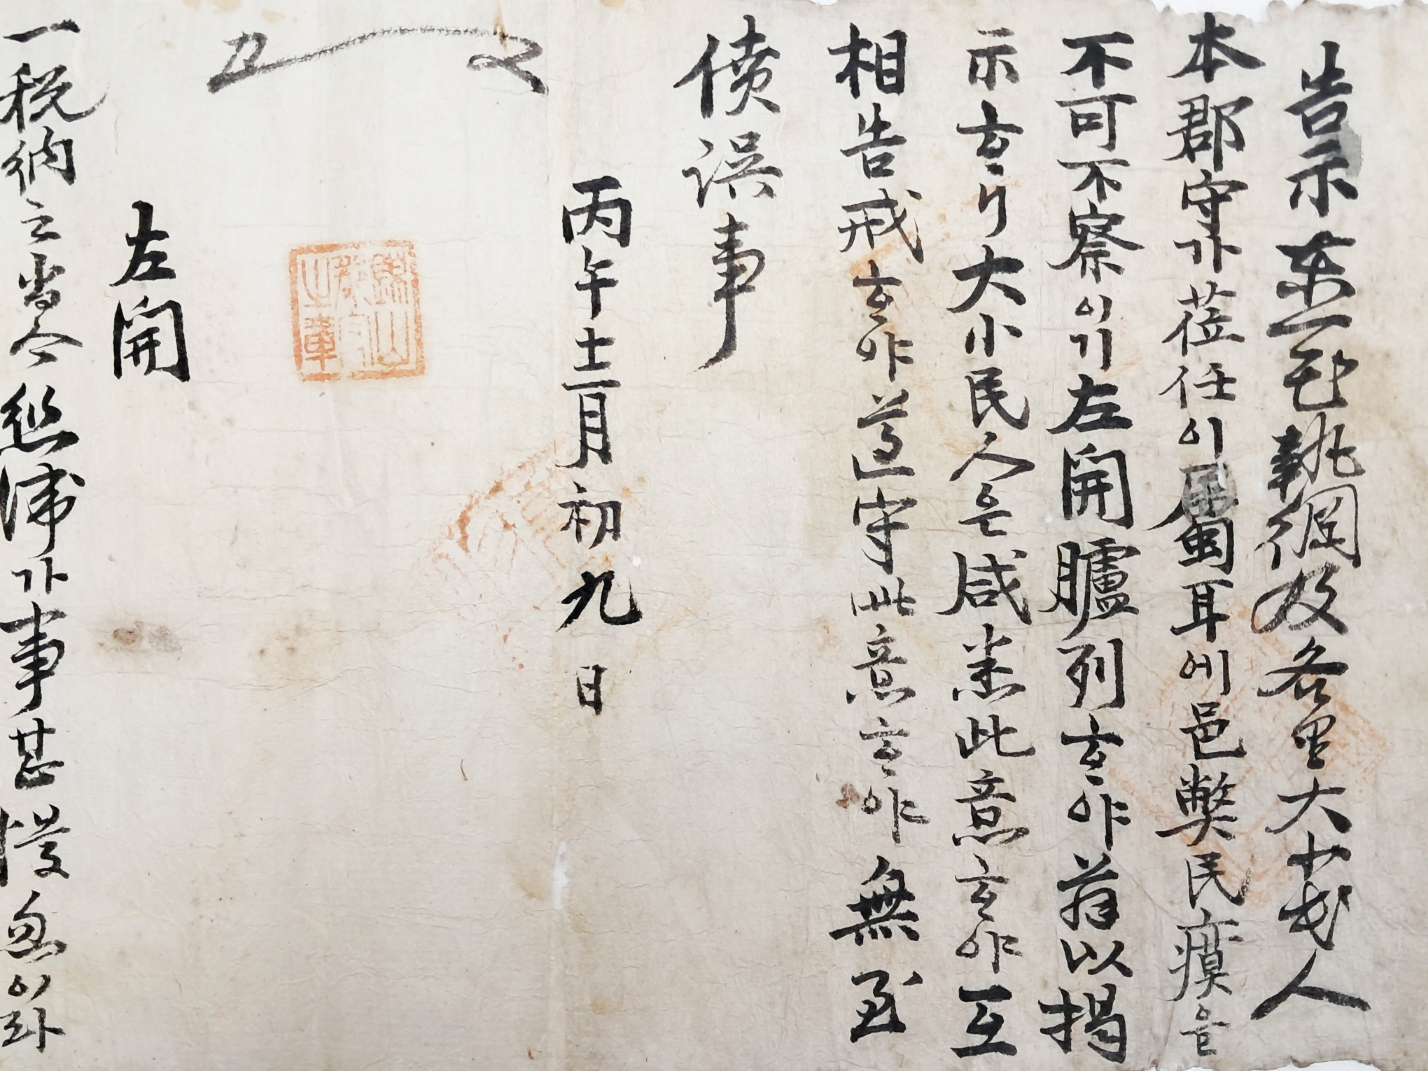 告示 東一面 執綱及各里大小民人
本郡守가 莅任이 屬耳에 邑弊民瘼을
不可不察이기 左開臚列하야 玆以揭
示하니 大小民人은 咸悉此意하야 互
相告戒하야 遵守此意하야 無至
僨誤事
丙午十二月初九日
左開
一 稅納之尙今愆滯가 事甚慢忽이라